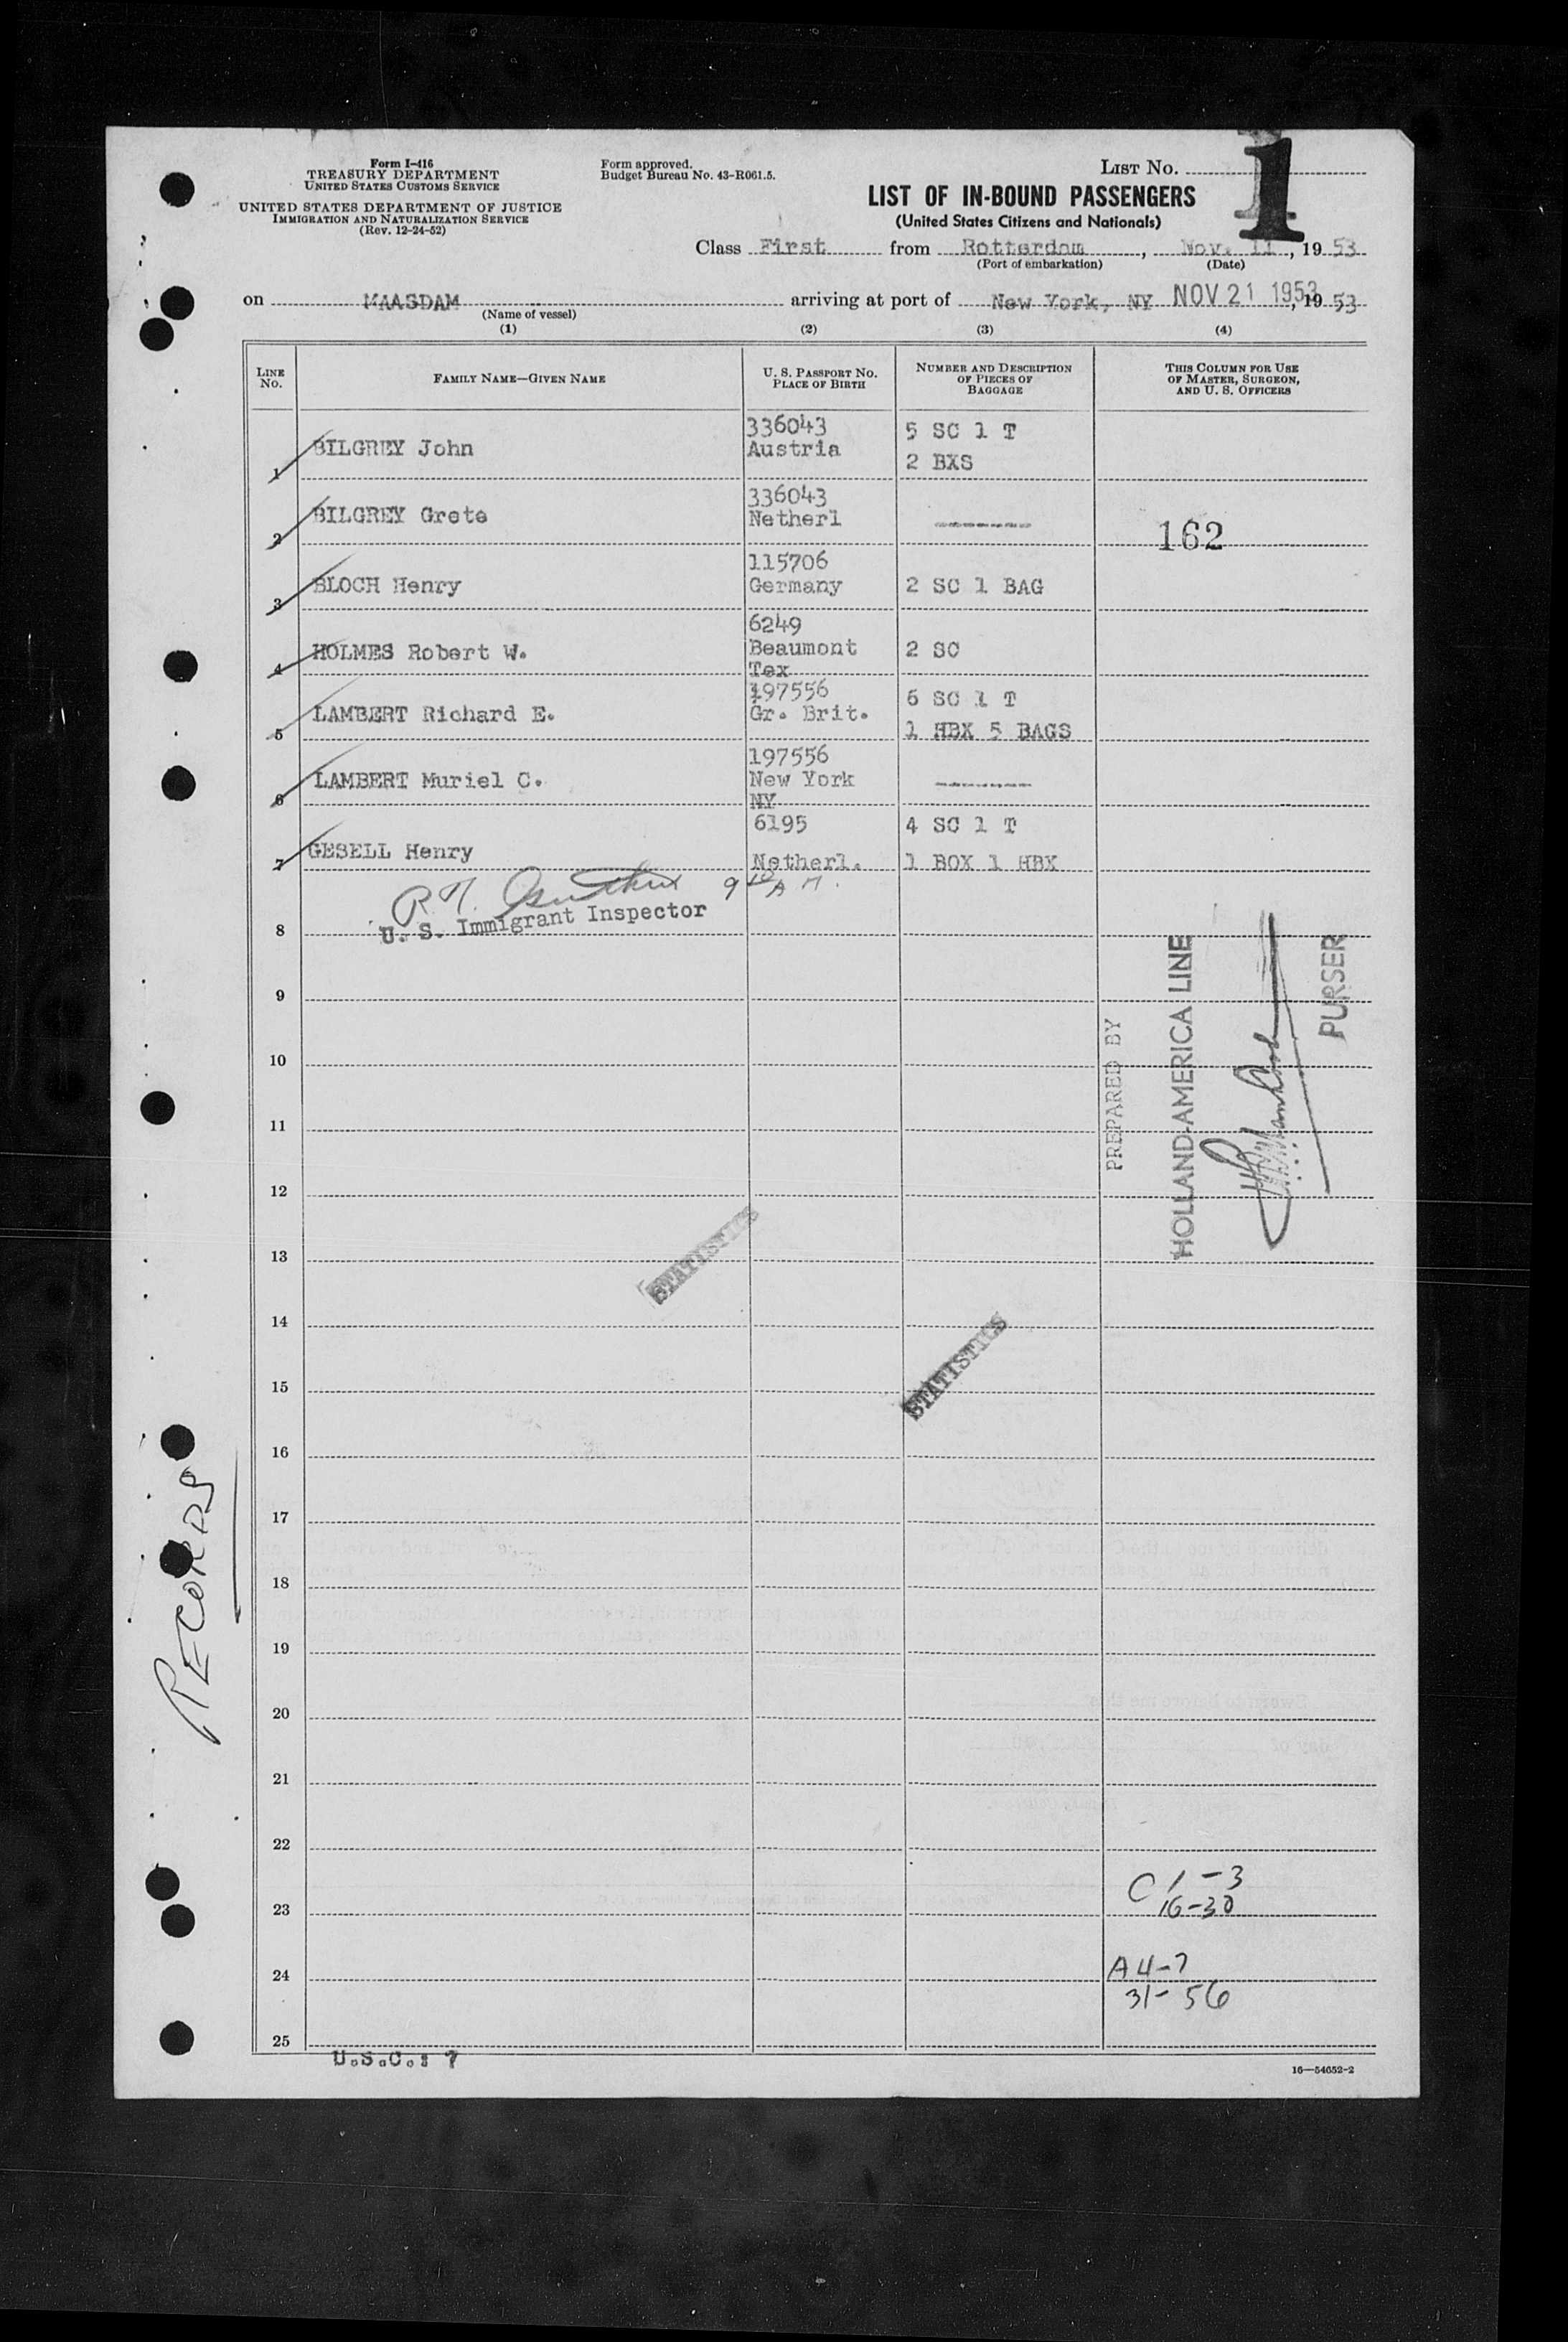 Form I-416
TREASURY DEPARTMENT
UNITED STATES CUSTOMS SERVICE
UNITED STATES DEPARTMENT OF JUSTICE
IMMIGRATION AND NATURALIZATION SERVICE
(Rev. 12-24-52)
Form approved.
Budget Bureau No. 43-R061.5.
LIST No. 1
LIST OF IN-BOUND PASSENGERS
(United States Citizens and Nationals)
Class First from Rotterdam, Nov. 11, 1953
(Port of embarkation) (Date)
on MAASDAM arriving at port of New York, NY NOV 21 1953, 1953
(Name of vessel)
(1) (2) (3) (4)
LINE No. FAMILY NAME—GIVEN NAME U. S. PASSPORT NO. PLACE OF BIRTH NUMBER AND DESCRIPTION OF PIECES OF BAGGAGE THIS COLUMN FOR USE OF MASTER, SURGEON, AND U. S. OFFICERS
336043 5 SC 1 T
1 BILGREY John Austria
2 BXS
336043
2 BILGREY Grete Netherl -------
162
115706
3 BLOCH Henry Germany 2 SC 1 BAG
6249
4 HOLMES Robert W. Beaumont 2 SC
Tex
197556 6 SC 1 T
5 LAMBERT Richard E. Gr. Brit.
1 HBX 5 BAGS
197556
6 LAMBERT Muriel C. New York -------
NY
6195 4 SC 1 T
7 GESELL Henry Netherl. 1 BOX 1 HBX
R. 9 10 A M.
U. S. Immigrant Inspector
8
9
10
11
12
13
14
15
16
17
18
19
20
21
22
23
24
25
PREPARED BY
HOLLAND-AMERICA LINE
PURSER
STATISTICS
STATISTICS
RECORDS
C 1-3
16-30
A 4-7
31-56
U.S.C.: 7
16—54652-2